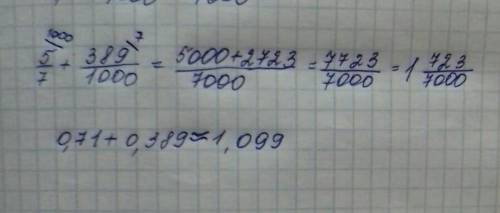 5/7 \1000 + 389/1000 \7 = 5000+2723/7000 = 7723/7000 = 1 723/7000
0,71+0,389≈1,099